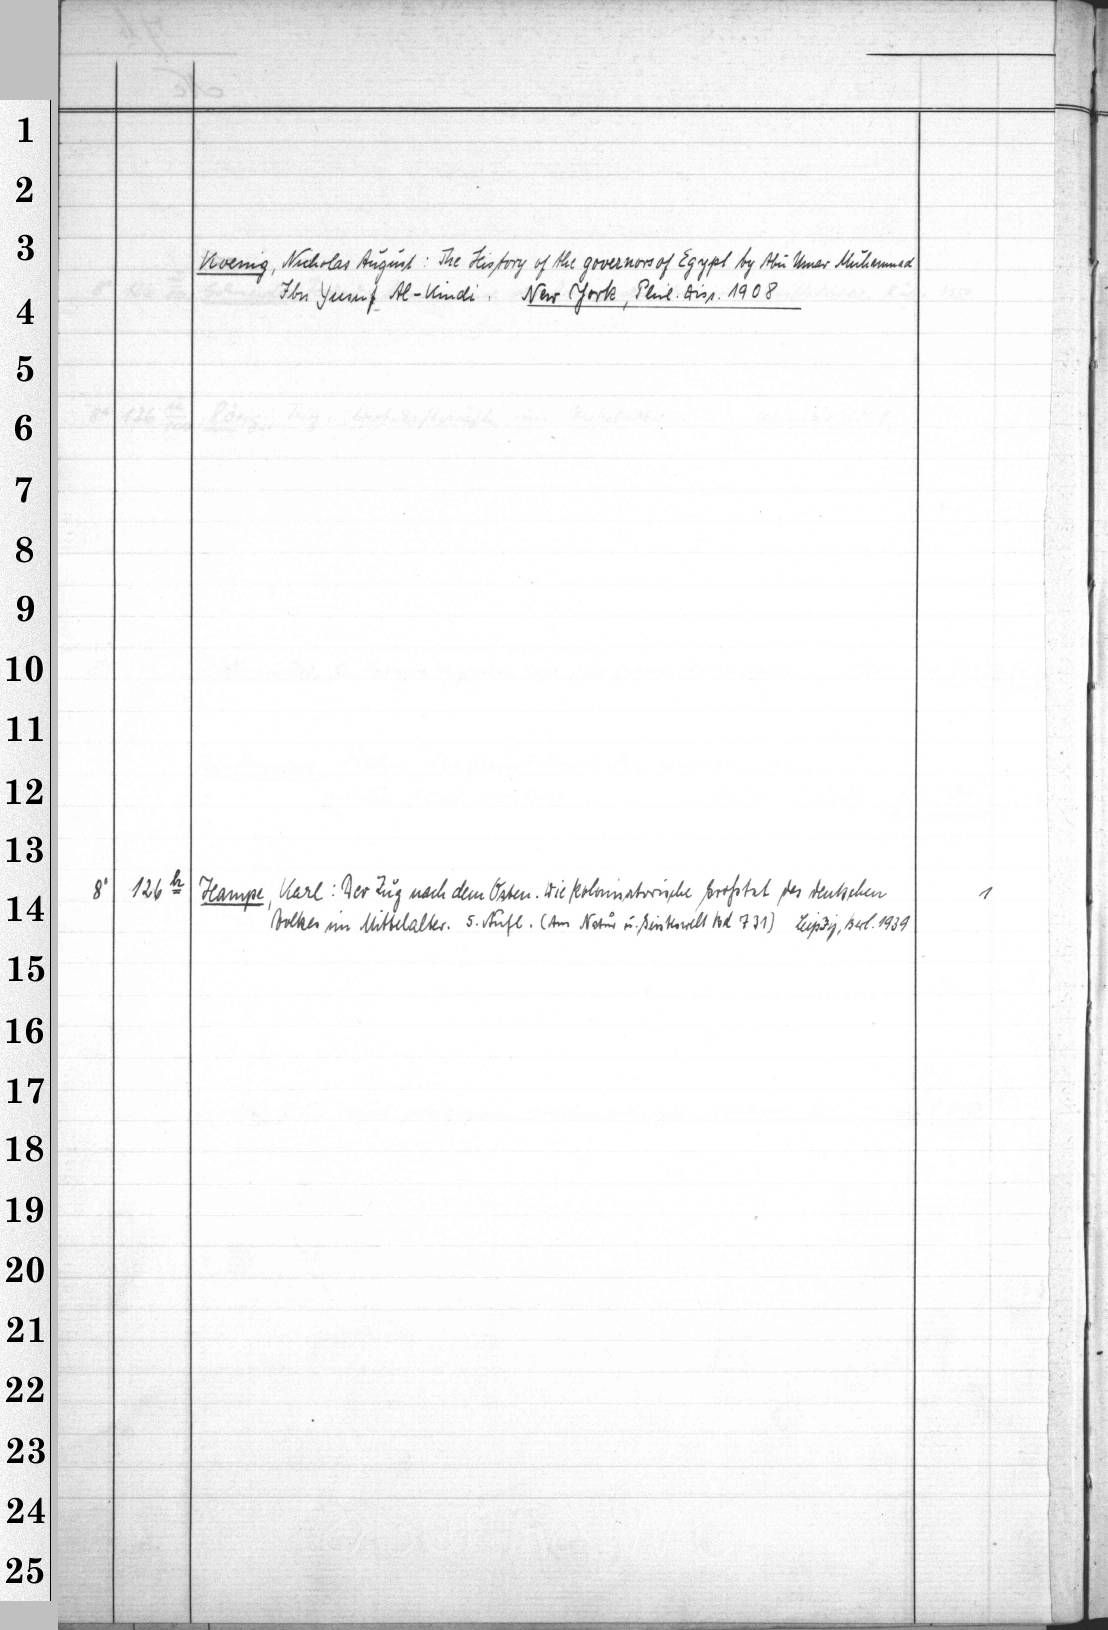 1
2
3
Koenig, Nicholas August: The History of the governors of Egypt by Abû Umar Muhammad
Ibn Yusuf Al-Kindi. New York, Phil. Diss. 1908
4
5
6
7
8
9
10
11
12
13
8° 126 Hampe, Karl: Der Zug nach dem Osten. Die kolonisatorische Großtat des deutschen 1
14
Volkes im Mittelalter. 5. Aufl. (Aus Natur u. Geisteswelt Bd 731) Leipzig, Berl. 1939
15
16
17
18
19
20
21
22
23
24
25